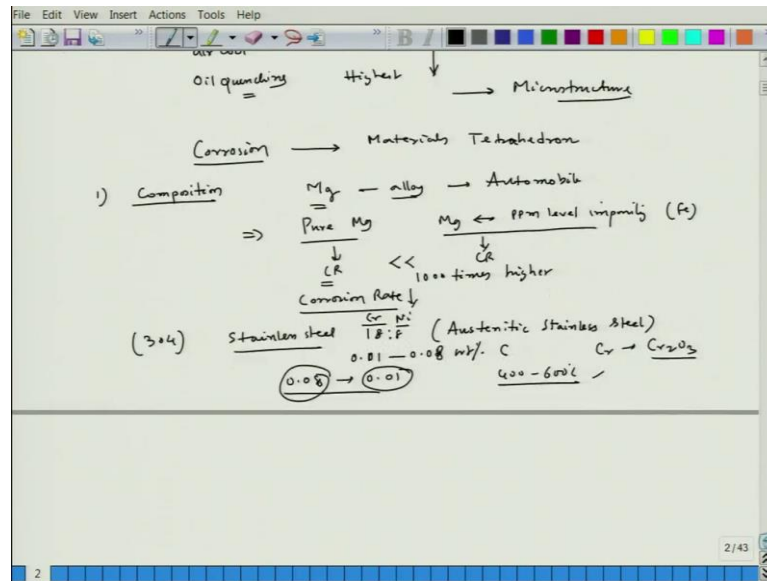 File Edit View Insert Actions Tools Help
air cool
Oil quenching Highest → Microstructure
Corrosion → Materials Tetrahedron
1) Composition Mg — alloy → Automobile
⇒ Pure Mg Mg ↔ PPm level impurity (Fe)
↓ ↓
CR << CR
1000 times higher
Corrosion Rate ↓
Cr Ni
(304) Stainless steel 18:8 (Austenitic Stainless Steel)
0.01 — 0.08 wt% C Cr → Cr2O3
0.08 → 0.01 400-600°C
2/43
2